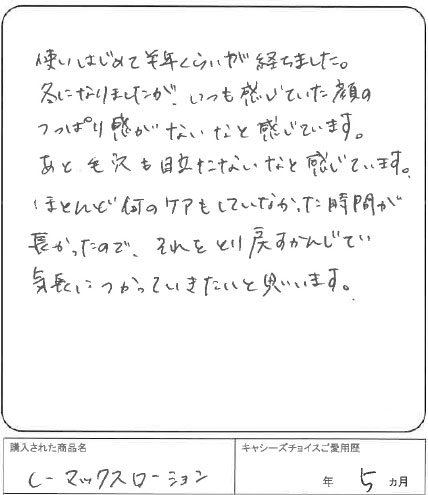 使いはじめて半年くらいが経ちました。
冬になりましたが、いつも感じていた顔の
つっぱり感がないなと感じています。
あと毛穴も目立たないなと感じています。
ほとんど何のケアもしていなかった時間が
長かったので、それをとり戻すかんじで
気長につかっていきたいと思います。
購入された商品名
キャシーズチョイスご愛用歴
C-マックスローション
年 5 ヵ月